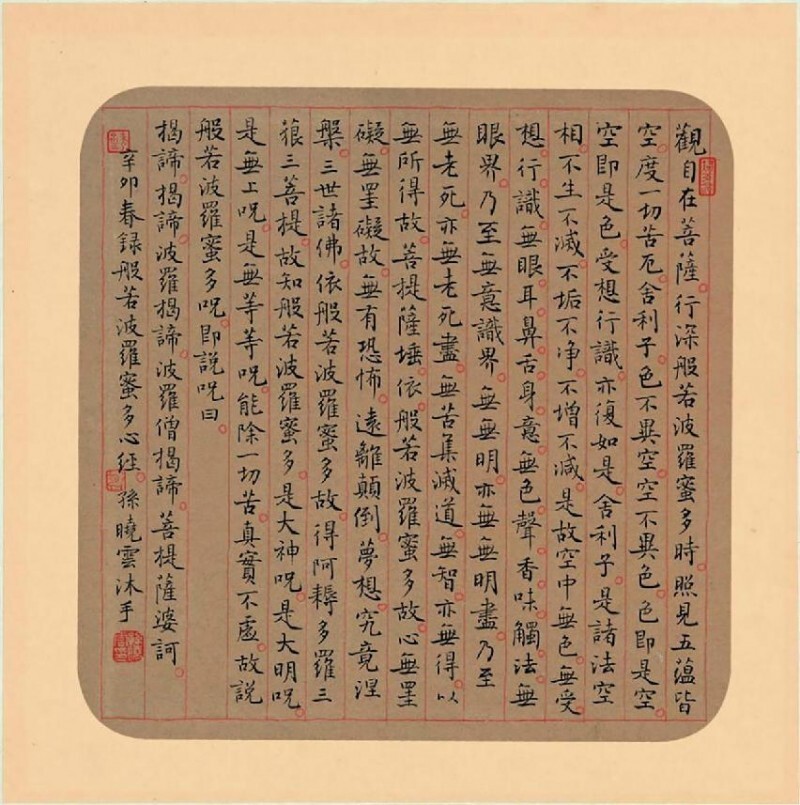 觀自在菩薩行深般若波羅蜜多時照見五蘊皆
空度一切苦厄舍利子色不異空空不異色色即是空
空即是色受想行識亦復如是舍利子是諸法空
相不生不滅不垢不净不增不减是故空中無色無受
想行識無眼耳鼻舌身意無色聲香味觸法無
眼界乃至無意識界無無明亦無無明盡乃至
無老死亦無老死盡無苦集滅道無智亦無得以
無所得故菩提薩埵依般若波羅蜜多故心無罣
礙無罣礙故無有恐怖遠離顛倒夢想究竟涅
槃三世諸佛依般若波羅蜜多故得阿耨多羅三
藐三菩提故知般若波羅蜜多是大神呪是大明呪
是無上呪是無等等呪能除一切苦真實不虛故說
般若波羅蜜多呪即說呪曰
揭諦揭諦波羅揭諦波羅僧揭諦菩提薩婆訶
辛卯春録般若波羅蜜多心經孫曉雲沐手